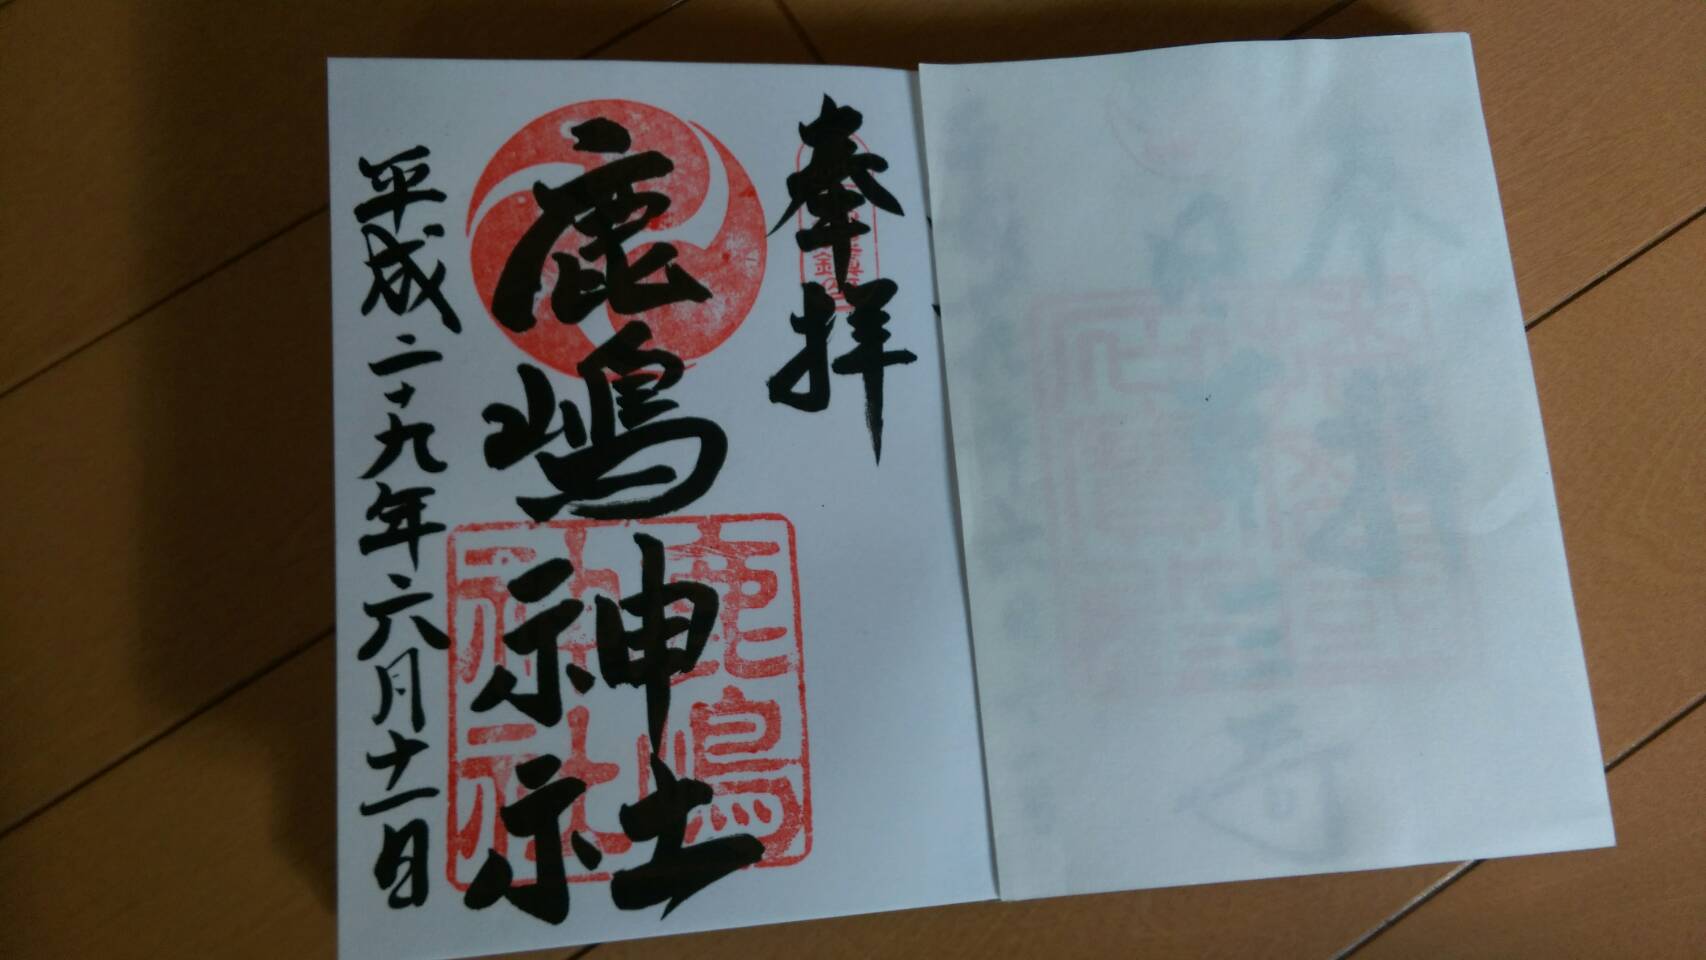 奉拝
鹿嶋神社
鹿嶋
神社
平成二十九年六月十一日